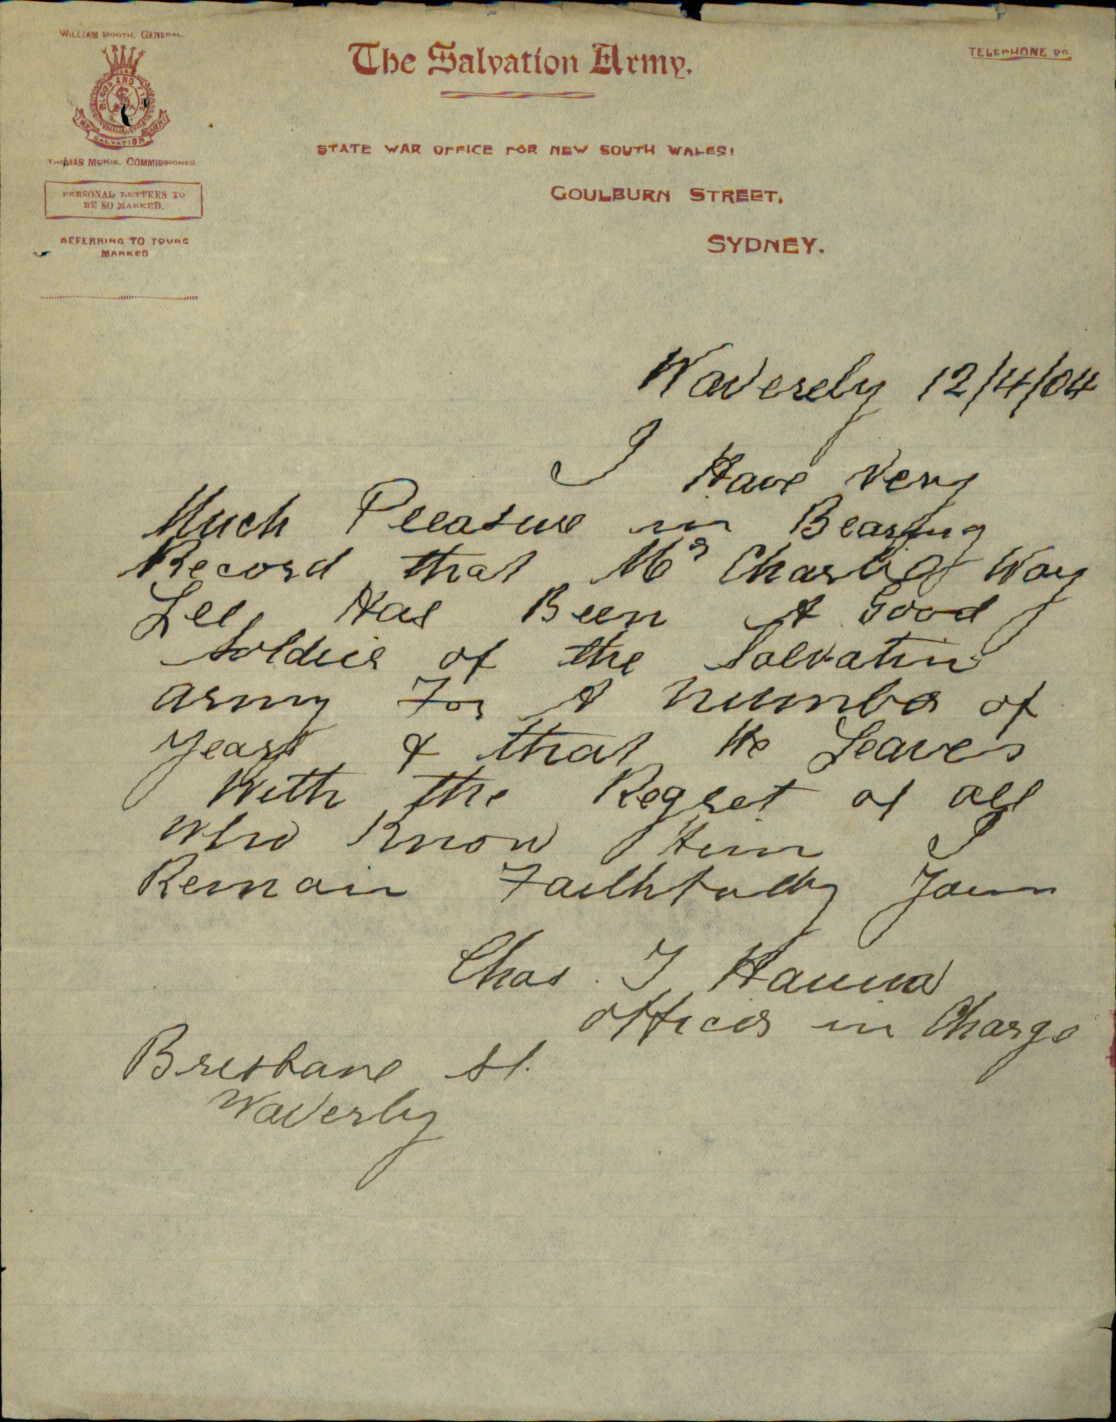 WILLIAM BOOTH, GENERAL.
The Salvation Army.
TELEPHONE
BLOOD AND FIRE
THE SALVATION ARMY
THOMAS MCKIE, COMMISSIONER
STATE WAR OFFICE FOR NEW SOUTH WALES:
PERSONAL LETTERS TO
BE SO MARKED.
GOULBURN STREET,
REFERRING TO YOURS
MARKED
SYDNEY.
Waverely 12/4/04
I Have Very
Much Pleasure in Bearing
Record that Mr Charlie Way
Lee, Has Been A Good
Soldier of the Salvation
army For A number of
years & that He Leaves
With the Regret of all
who Know Him I
Remain Faithfully Yours
Chas. T Hanna
officer in Charge
Brisbane St.
Waverly